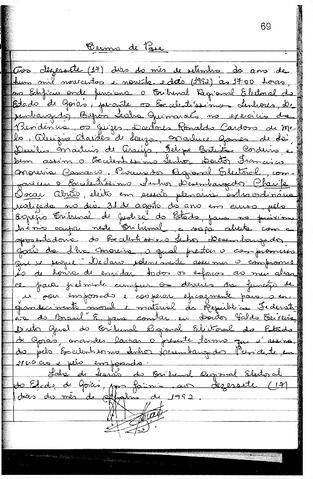 69
Termo de Posse
Aos dezessete (17) dias do mês de setembro do ano de
hum mil novecentos e noventa e dois (1992), às 17:00 horas,
no Edifício onde funciona o Tribunal Regional Eleitoral do
Estado de Goiás, perante os Excelentíssimos Senhores, De-
sembargador Byron Seabra Guimarães, no exercício da
Presidência, os Juízes, Doutores Ronaldo Cardoso de Me-
lo, Aluizio Ataídes de Souza, Gomes de Sá,
Martins de Araujo, Felipe Batista Cordeiro e
bem assim o Excelentíssimo Senhor Doutor Francisco
Moreira Camarço, Procurador Regional Eleitoral, com-
pareceu o Excelentíssimo Senhor Desembargador
Abrão, eleito em sessão plenária extraordinária
realizada no dia 31 de agosto do ano em curso, pelo
Egrégio Tribunal de Justiça do Estado, para no próximo
biênio ocupar neste Tribunal, a vaga aberta com a
aposentadoria do Excelentíssimo Senhor Desembargador
da Silva o qual prestou o compromisso
que se segue: "Declaro solenemente assumir o compromis-
so de honra de envidar todos os esforços ao meu alcan-
ce para fielmente cumprir os deveres da função de
e cooperar eficazmente para o en-
grandecimento moral e material da República Federati-
va do Brasil". E, para constar, Doutor Valdo Teixeira
Diretor Geral do Tribunal Regional Eleitoral do Estado
de Goiás, mandei lavrar o presente termo que é assina-
do pelo Excelentíssimo Senhor Desembargador Presidente em
exercício e pelo empossando.
Sala de Sessões do Tribunal Regional Eleitoral
do Estado de Goiás, em Goiânia, aos dezessete (17)
dias do mês de setembro de 1992.